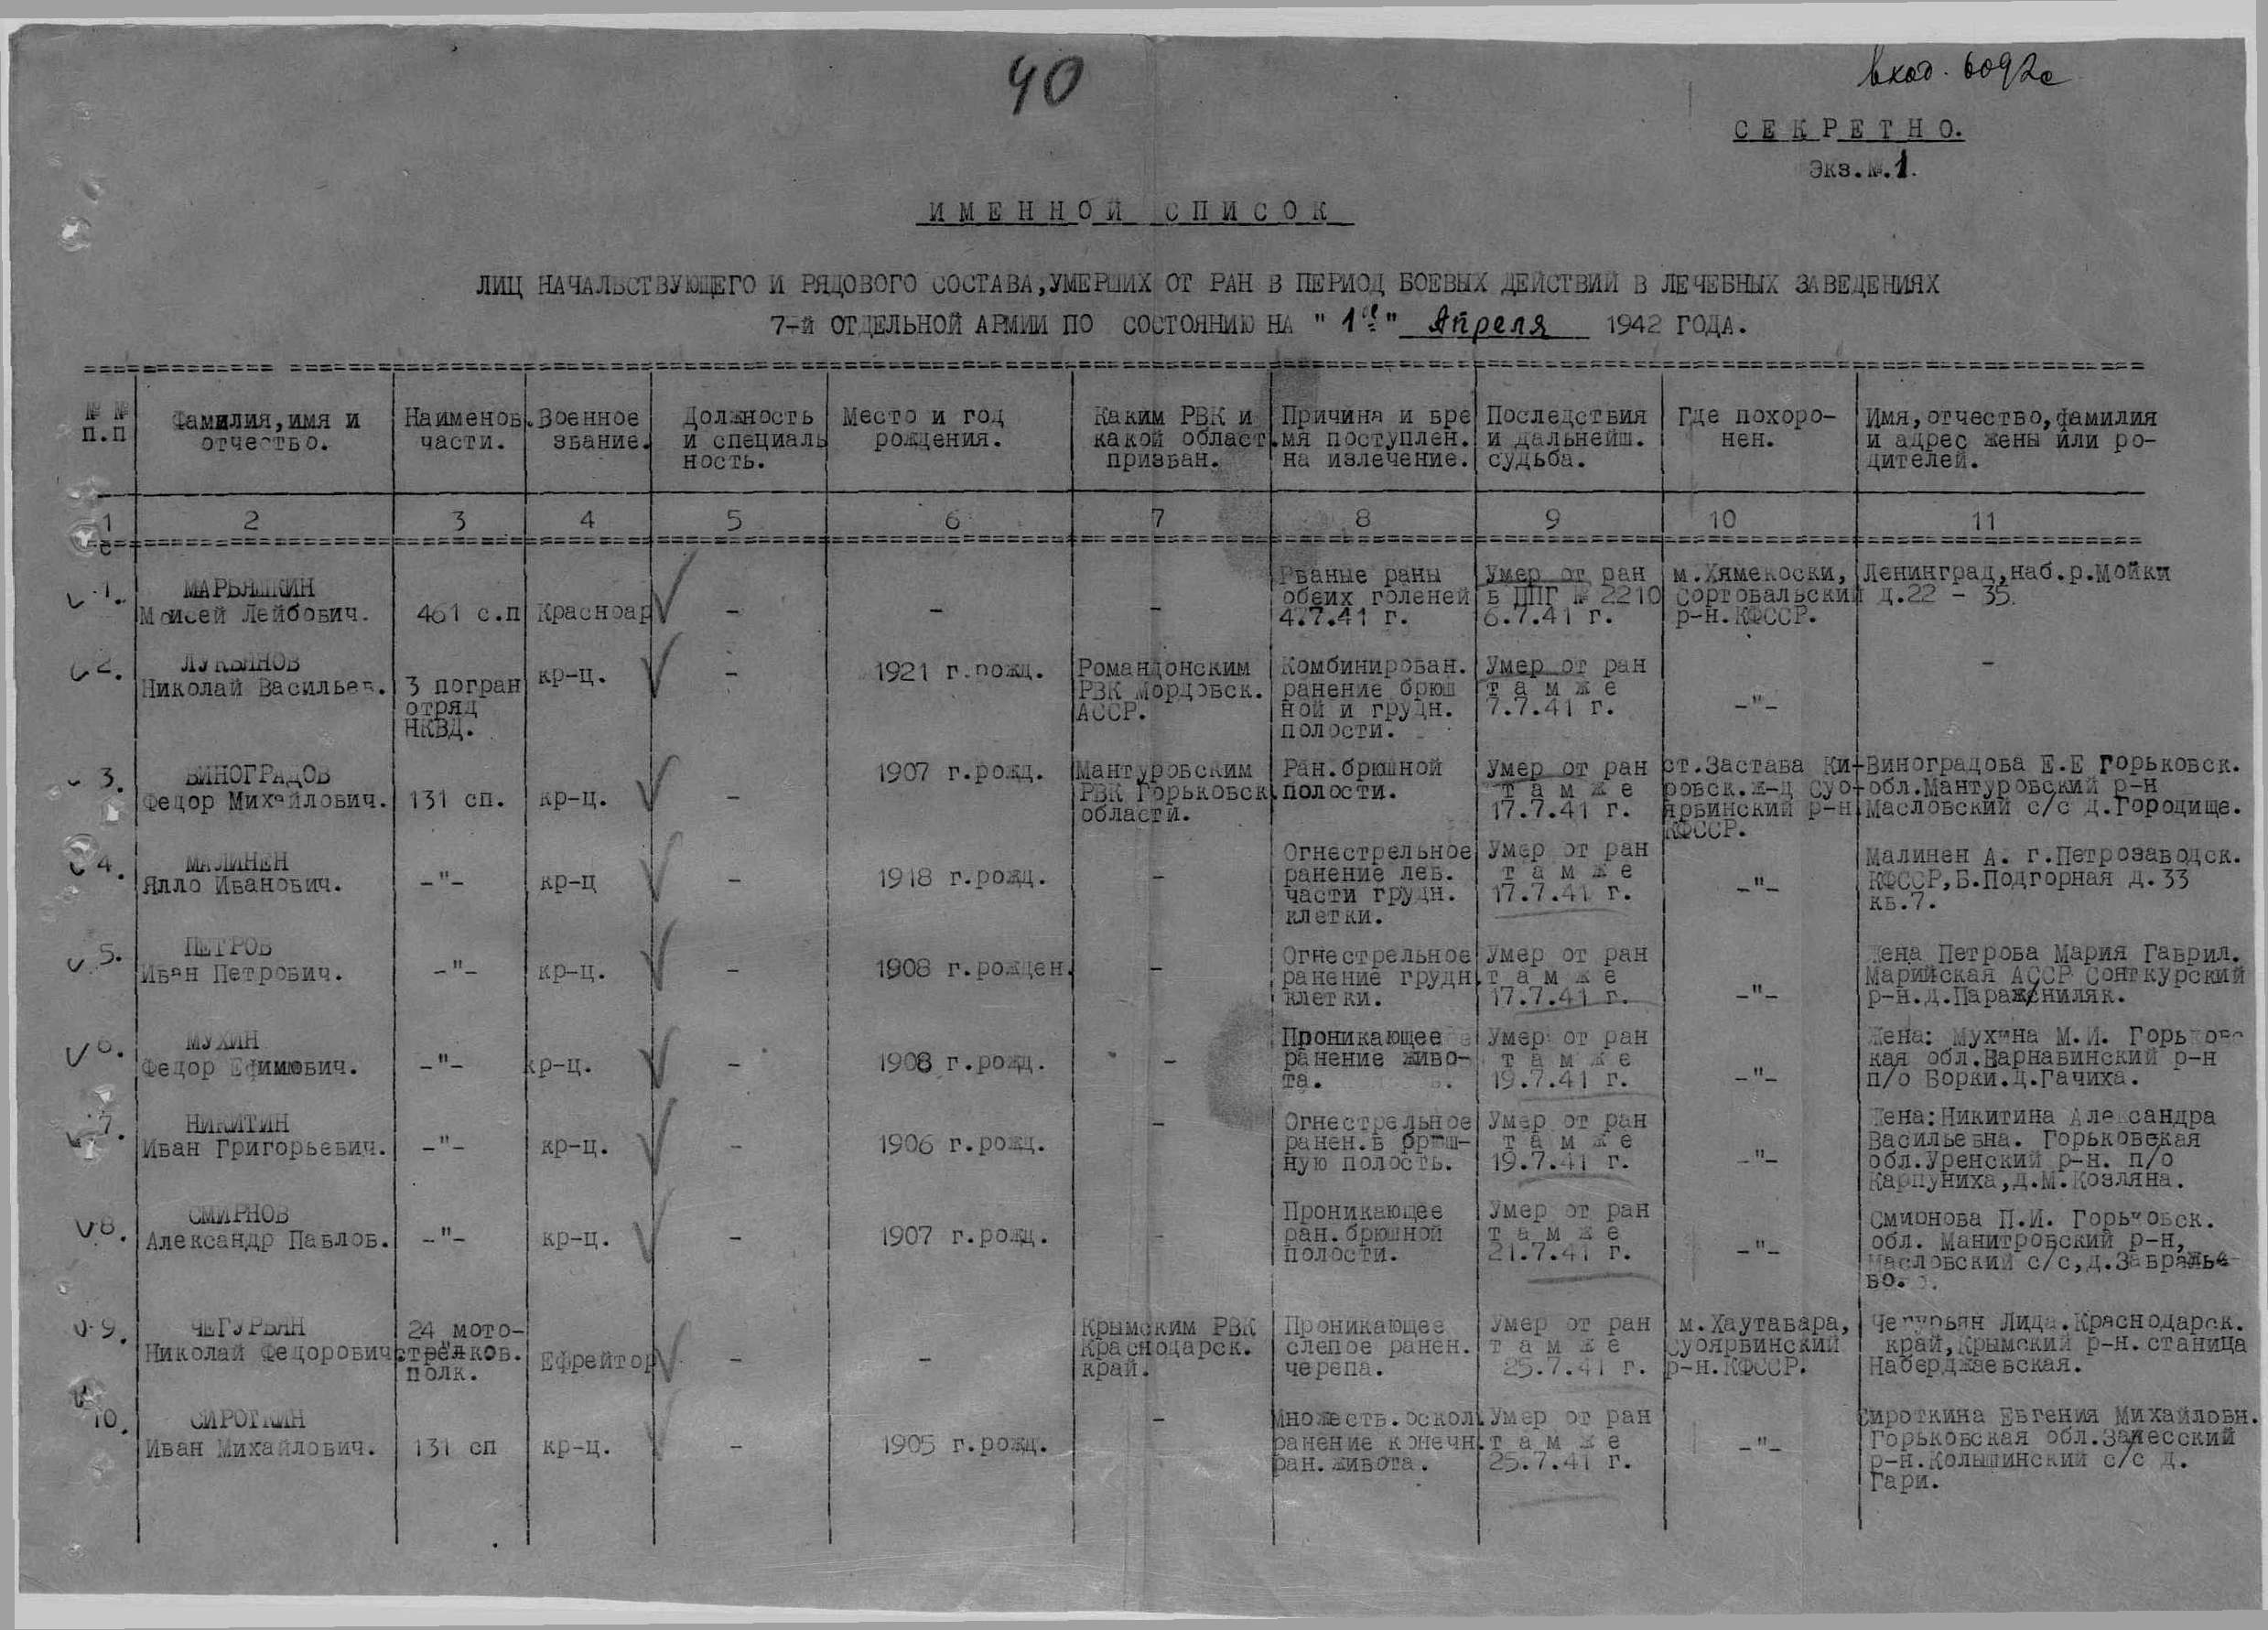 40
вход. 6092с
СЕКРЕТНО.
Экз.№.1.
ИМЕННОЙ СПИСОК
ЛИЦ НАЧАЛЬСТВУЮЩЕГО И РЯДОВОГО СОСТАВА, УМЕРШИХ ОТ РАН В ПЕРИОД БОЕВЫХ ДЕЙСТВИЙ В ЛЕЧЕБНЫХ ЗАВЕДЕНИЯХ
7-й ОТДЕЛЬНОЙ АРМИИ ПО СОСТОЯНИЮ НА "1ое" Апреля 1942 ГОДА.
№ №
п.п
Фамилия, имя и
отчество.
Наименов.
части.
Военное
звание.
Должность
и специаль
ность.
Место и год
рождения.
Каким РВК и
какой област.
призван.
Причина и вре
мя поступлен.
на излечение.
Последствия
и дальнейш.
судьба.
Где похоро-
нен.
Имя, отчество, фамилия
и адрес жены или ро-
дителей.
1 2 3 4 5 6 7 8 9 10 11
1.
МАРЬЯШКИН
Моисей Лейбович.
461 с.п
Красноар
-
-
-
Рваные раны
обеих голеней
4.7.41 г.
Умер от ран
в ППГ № 2210
6.7.41 г.
м.Хямекоски,
Сортовальский
р-н.КФССР.
Ленинград, наб.р.Мойки
д.22 - 35.
2.
ЛУКЬЯНОВ
Николай Васильев.
3 погран
отряд
НКВД.
кр-ц.
-
1921 г.рожд.
Романдонским
РВК Мордовск.
АССР.
Комбинирован.
ранение брюш
ной и грудн.
полости.
Умер от ран
т а м ж е
7.7.41 г.
-"-
-
3.
ВИНОГРАДОВ
Федор Михайлович.
131 сп.
кр-ц.
-
1907 г.рожд.
Мантуровским
РВК Горьковск.
области.
Ран.брюшной
полости.
Умер от ран
т а м ж е
17.7.41 г.
ст.Застава Ки-
ровск.ж-д Суо-
ярвинский р-н
КФССР.
Виноградова Е.Е Горьковск.
обл.Мантуровский р-н
Масловский с/с д.Городище.
4.
МАЛИНЕН
Ялло Иванович.
-"-
кр-ц
-
1918 г.рожд.
-
Огнестрельное
ранение лев.
части грудн.
клетки.
Умер от ран
т а м ж е
17.7.41 г.
-"-
Малинен А. г.Петрозаводск.
КФССР, Б.Подгорная д.33
кв.7.
5.
ПЕТРОВ
Иван Петрович.
-"-
кр-ц.
-
1908 г.рожден.
-
Огнестрельное
ранение грудн.
клетки.
Умер от ран
т а м ж е
17.7.41 г.
-"-
Жена Петрова Мария Гаврил.
Марийская АССР Сонгкурский
р-н.д.Параженилях.
6.
МУХИН
Федор Ефимович.
-"-
кр-ц.
-
1908 г.рожд.
-
Проникающее
ранение живо-
та.
Умер от ран
т а м ж е
19.7.41 г.
-"-
Жена: Мухина М.И. Горьковс
кая обл.Варнавинский р-н
п/о Борки.д.Гачиха.
7.
НИКИТИН
Иван Григорьевич.
-"-
кр-ц.
-
1906 г.рожд.
-
Огнестрельное
ранен.в брюш-
ную полость.
Умер от ран
т а м ж е
19.7.41 г.
-"-
Жена: Никитина Александра
Васильевна. Горьковская
обл.Уренский р-н. п/о
Карпуниха, д.М.Козляна.
8.
СМИРНОВ
Александр Павлов.
-"-
кр-ц.
-
1907 г.рожд.
-
Проникающее
ран.брюшной
полости.
Умер от ран
т а м ж е
21.7.41 г.
-"-
Смирнова П.И. Горьковск.
обл. Манитровский р-н,
Масловский с/с, д.Завралье-
во.
9.
ЧЕГУРЬЯН
Николай Федорович.
24 мото-
стрелков.
полк.
Ефрейтор
-
-
Крымским РВК
Краснодарск.
край.
Проникающее
слепое ранен.
черепа.
Умер от ран
т а м ж е
25.7.41 г.
м.Хаутавара,
Суоярвинский
р-н.КФССР.
Чегурьян Лида.Краснодарск.
край, Крымский р-н.станица
Наберджаевская.
10.
СИРОТКИН
Иван Михайлович.
131 сп
кр-ц.
-
1905 г.рожд.
-
Множеств.оскол.
ранение конечн.
ран.живота.
Умер от ран
т а м ж е
25.7.41 г.
-"-
Сироткина Евгения Михайловн.
Горьковская обл.Занесский
р-н.Колышинский с/с д.
Гари.